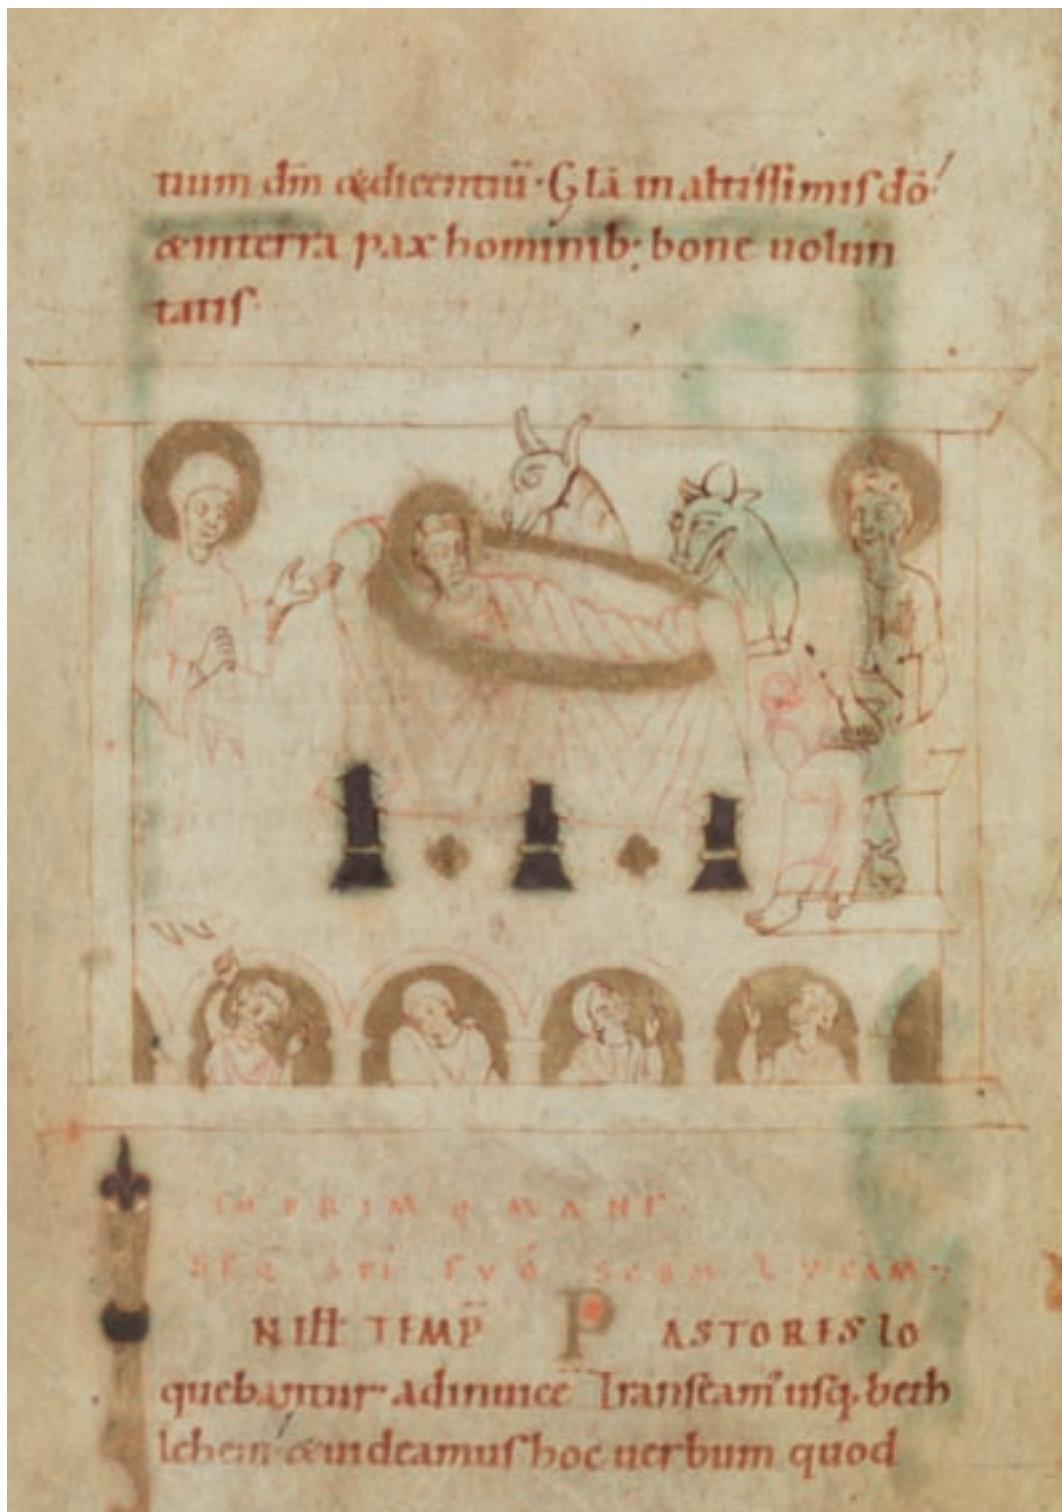 tium dm̄ & dicentiū· Glā in altissimis dō·
& in terra pax hominib; bone uolun
tatis·
IN PRIMO MANE·
SEQ̄ SC̄I EVḠ SCDM LVCAM·
N ILL̄ TEMP̄ PASTORES lo
quebantur adinuicē Transeam' usq; beth
lehem & uideamus hoc uerbum quod